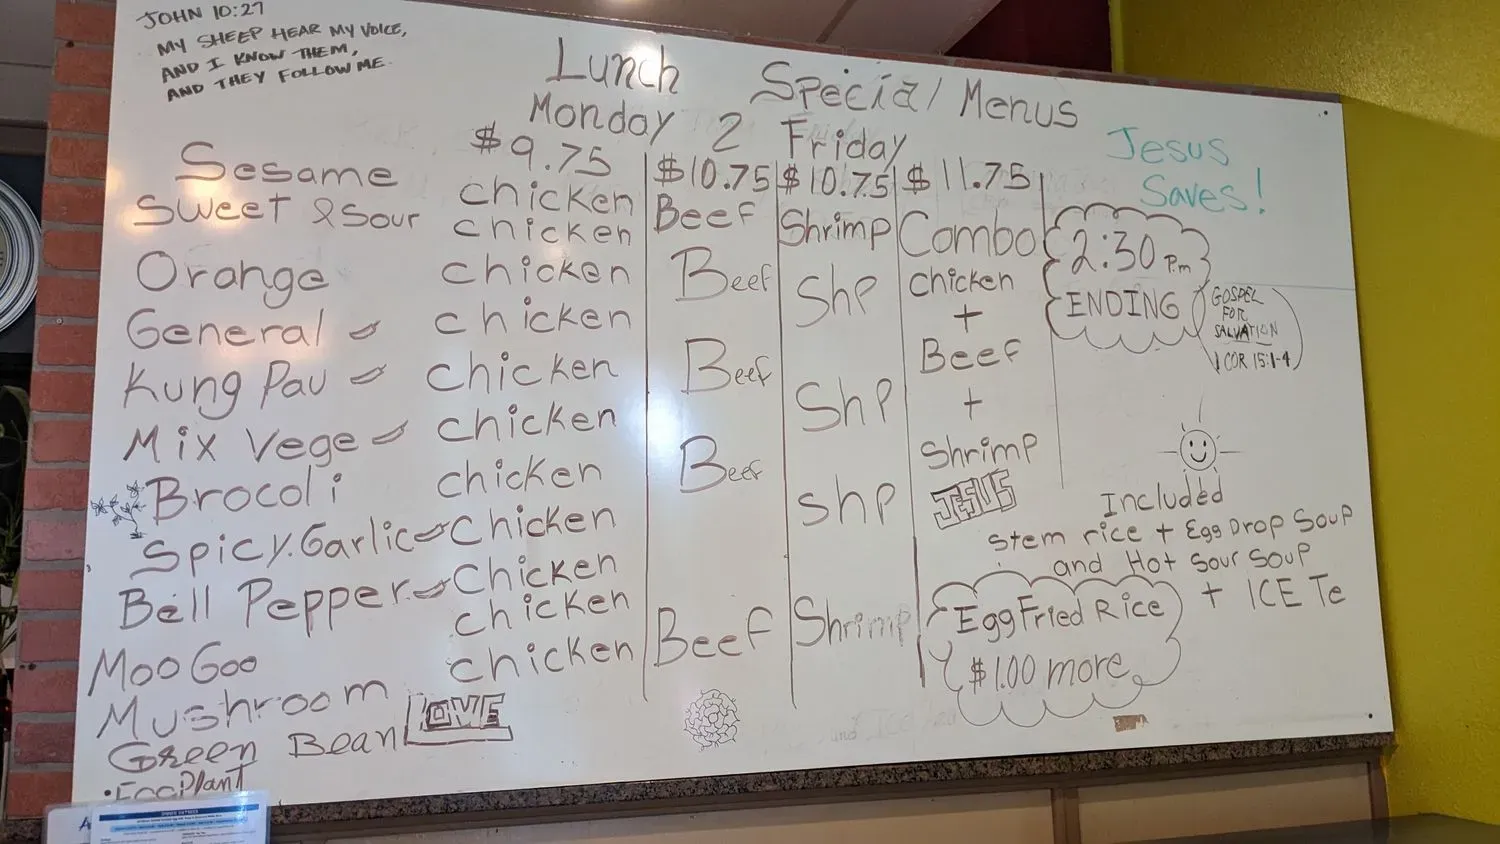 JOHN 10:27
MY SHEEP HEAR MY VOICE,
AND I KNOW THEM,
AND THEY FOLLOW ME.
Lunch Special Menus
Monday 2 Friday
Jesus
Saves!
$9.75 $10.75 $10.75 $11.75
Sesame chicken Beef Shrimp Combo
Sweet & Sour chicken
Orange chicken Beef Shp chicken
General chicken +
Kung Pau chicken Beef Shp Beef
Mix Vege chicken +
Brocoli chicken Beef Shp Shrimp
Spicy.Garlic Chicken
Bell Pepper Chicken
Moo Goo chicken Beef Shrimp
Mushroom chicken
Green Bean
EggPlant
LOVE
JESUS
2:30 P.m
ENDING
GOSPEL
FOR
SALVATION
1 COR 15:1-4
Included
Stem rice + Egg Drop Soup
and Hot Sour Soup
+ ICE Te
Egg Fried Rice
$1.00 more